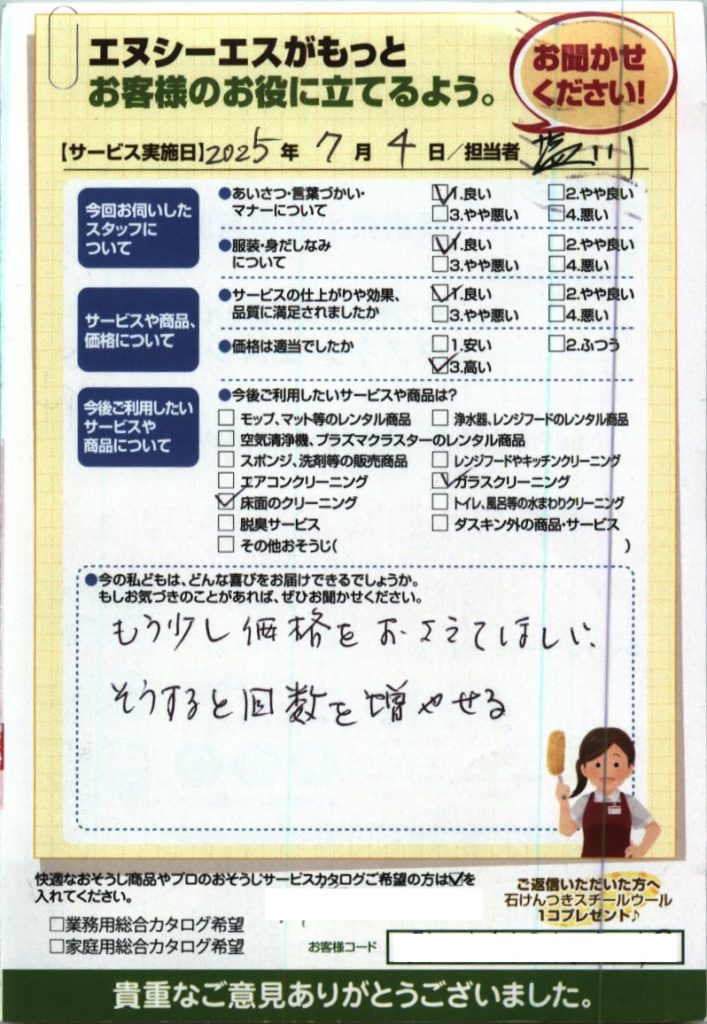 エヌシーエスがもっと
お客様のお役に立てるよう。
お聞かせ
ください!
【サービス実施日】2025年 7月 4日/担当者 塩川
今回お伺いした
スタッフに
ついて
●あいさつ・言葉づかい・
マナーについて
☑1.良い □2.やや良い
□3.やや悪い □4.悪い
●服装・身だしなみ
について
☑1.良い □2.やや良い
□3.やや悪い □4.悪い
サービスや商品、
価格について
●サービスの仕上がりや効果、
品質に満足されましたか
☑1.良い □2.やや良い
□3.やや悪い □4.悪い
●価格は適当でしたか
□1.安い □2.ふつう
☑3.高い
今後ご利用したい
サービスや
商品について
●今後ご利用したいサービスや商品は?
□ モップ、マット等のレンタル商品 □ 浄水器、レンジフードのレンタル商品
□ 空気清浄機、プラズマクラスターのレンタル商品
□ スポンジ、洗剤等の販売商品 □ レンジフードやキッチンクリーニング
□ エアコンクリーニング ☑ ガラスクリーニング
☑ 床面のクリーニング □ トイレ、風呂等の水まわりクリーニング
□ 脱臭サービス □ ダスキン外の商品・サービス
□ その他おそうじ( )
●今の私どもは、どんな喜びをお届けできるでしょうか。
もしお気づきのことがあれば、ぜひお聞かせください。
もう少し価格をおさえてほしい.
そうすると回数を増やせる
快適なおそうじ商品やプロのおそうじサービスカタログご希望の方は☑を
入れてください。
□業務用総合カタログ希望
□家庭用総合カタログ希望
ご返信いただいた方へ
石けんつきスチールウール
1コプレゼント♪
お客様コード
貴重なご意見ありがとうございました。